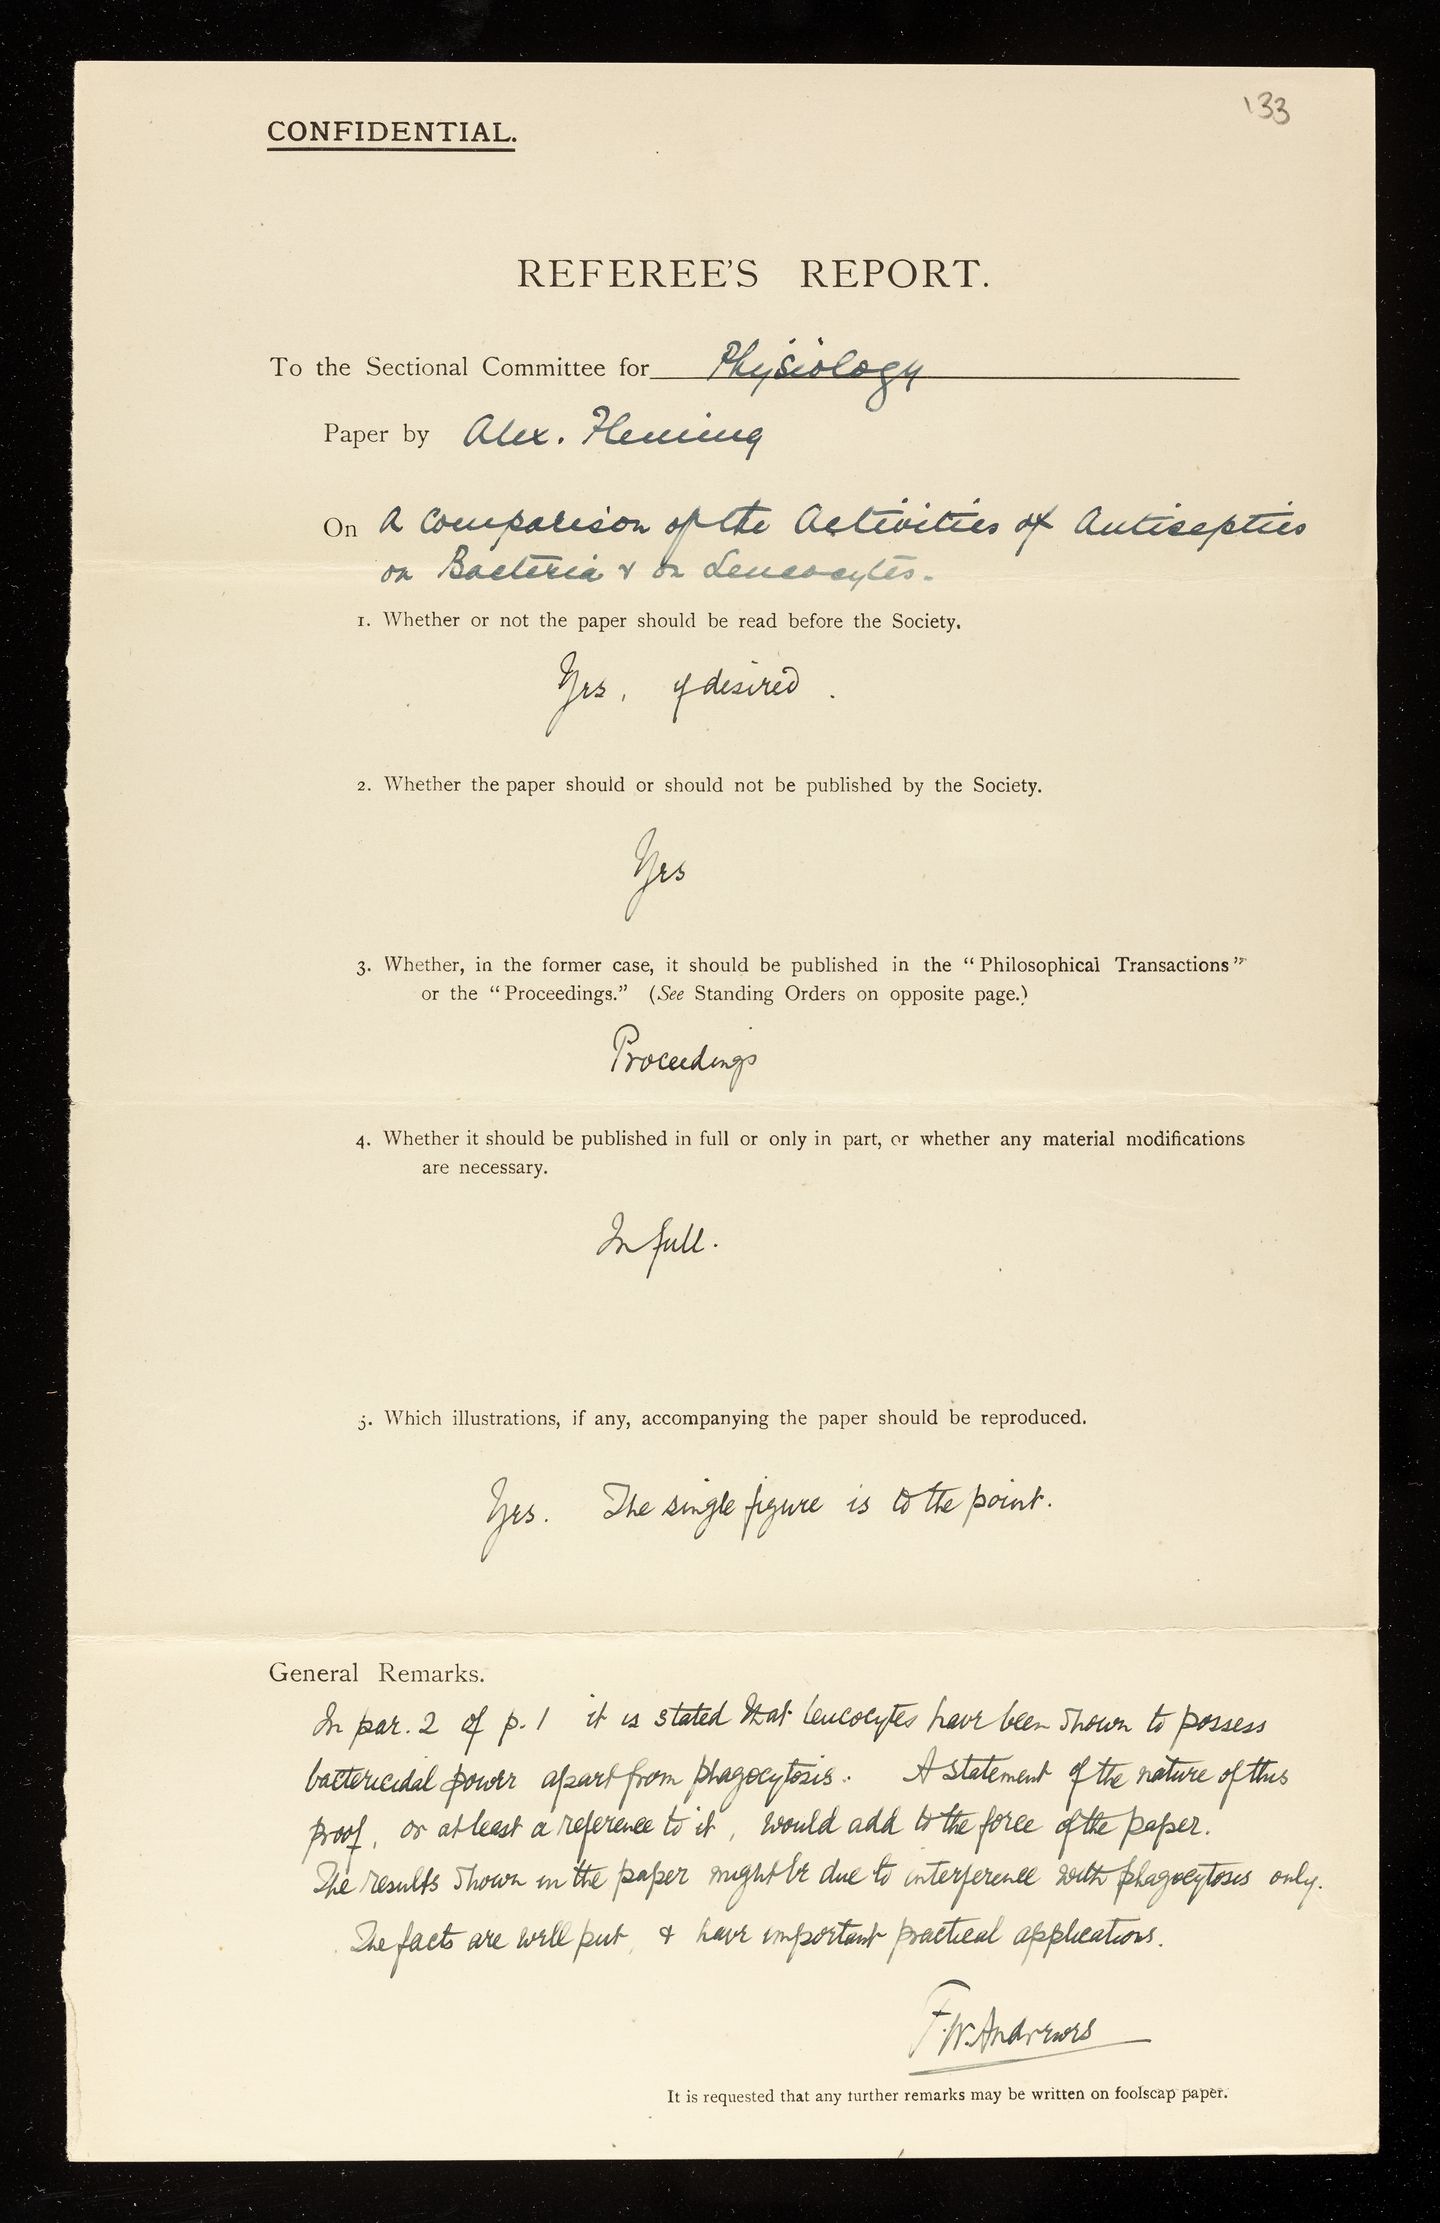 133
CONFIDENTIAL.
REFEREE'S REPORT.
To the Sectional Committee for Physiology
Paper by Alex. Fleming
On A Comparison of the Activities of Antiseptics
on Bacteria & on Leucocytes.
1. Whether or not the paper should be read before the Society.
Yes, if desired.
2. Whether the paper should or should not be published by the Society.
Yes
3. Whether, in the former case, it should be published in the "Philosophical Transactions"
or the "Proceedings." (See Standing Orders on opposite page.)
Proceedings
4. Whether it should be published in full or only in part, or whether any material modifications
are necessary.
In full.
5. Which illustrations, if any, accompanying the paper should be reproduced.
Yes. The single figure is to the point.
General Remarks.
In par. 2 of p. 1 it is stated that leucocytes have been shown to possess
bactericidal power apart from phagocytosis. A statement of the nature of this
proof, or at least a reference to it, would add to the force of the paper.
The results shown in the paper might be due to interference with phagocytosis only.
The facts are well put, & have important practical applications.
F. W. Andrewes
It is requested that any further remarks may be written on foolscap paper.